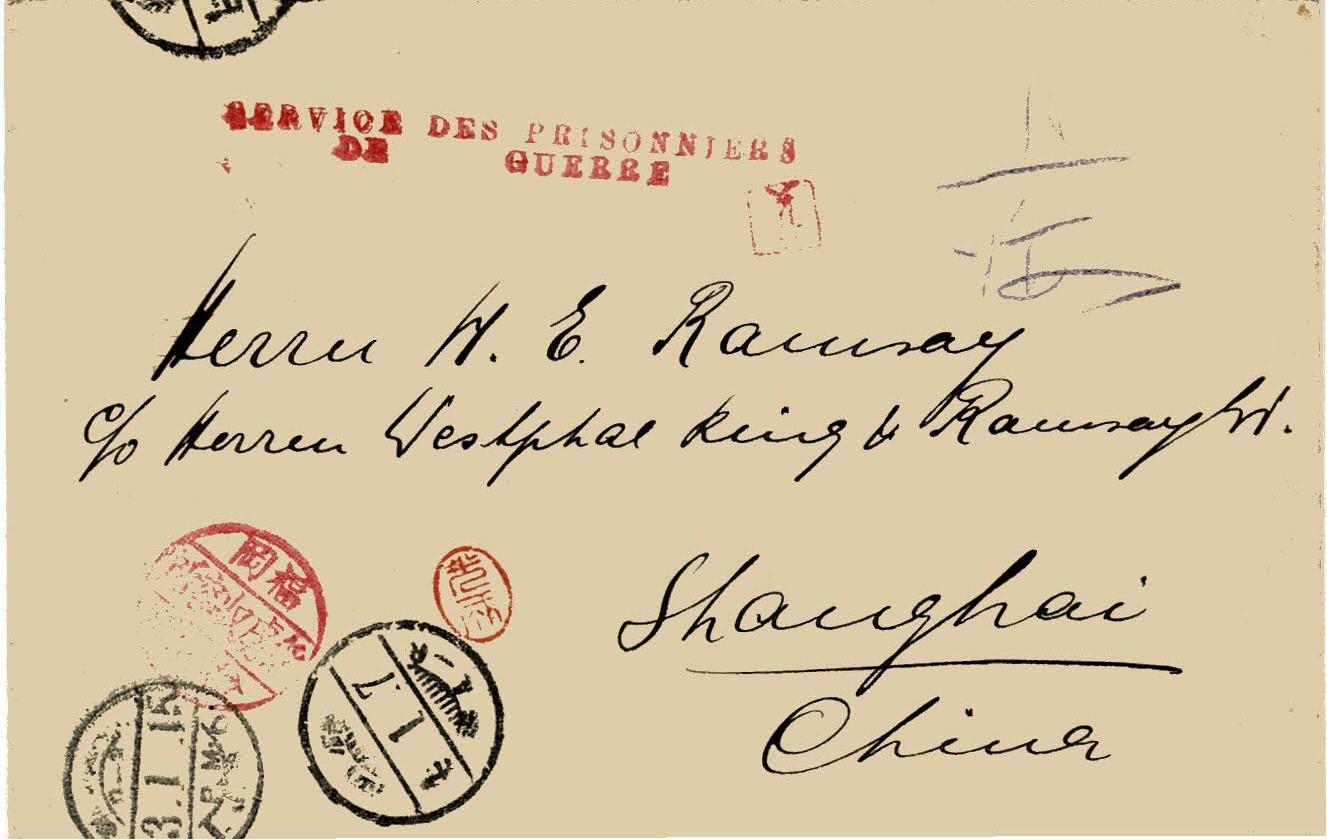 SERVICE DES PRISONNIERS
DE GUERRE
Herrn W. E. Ramsay
c/o Herren Westphal King & Ramsay Ld.
Shanghai
China
福岡
3.1.15
7 1